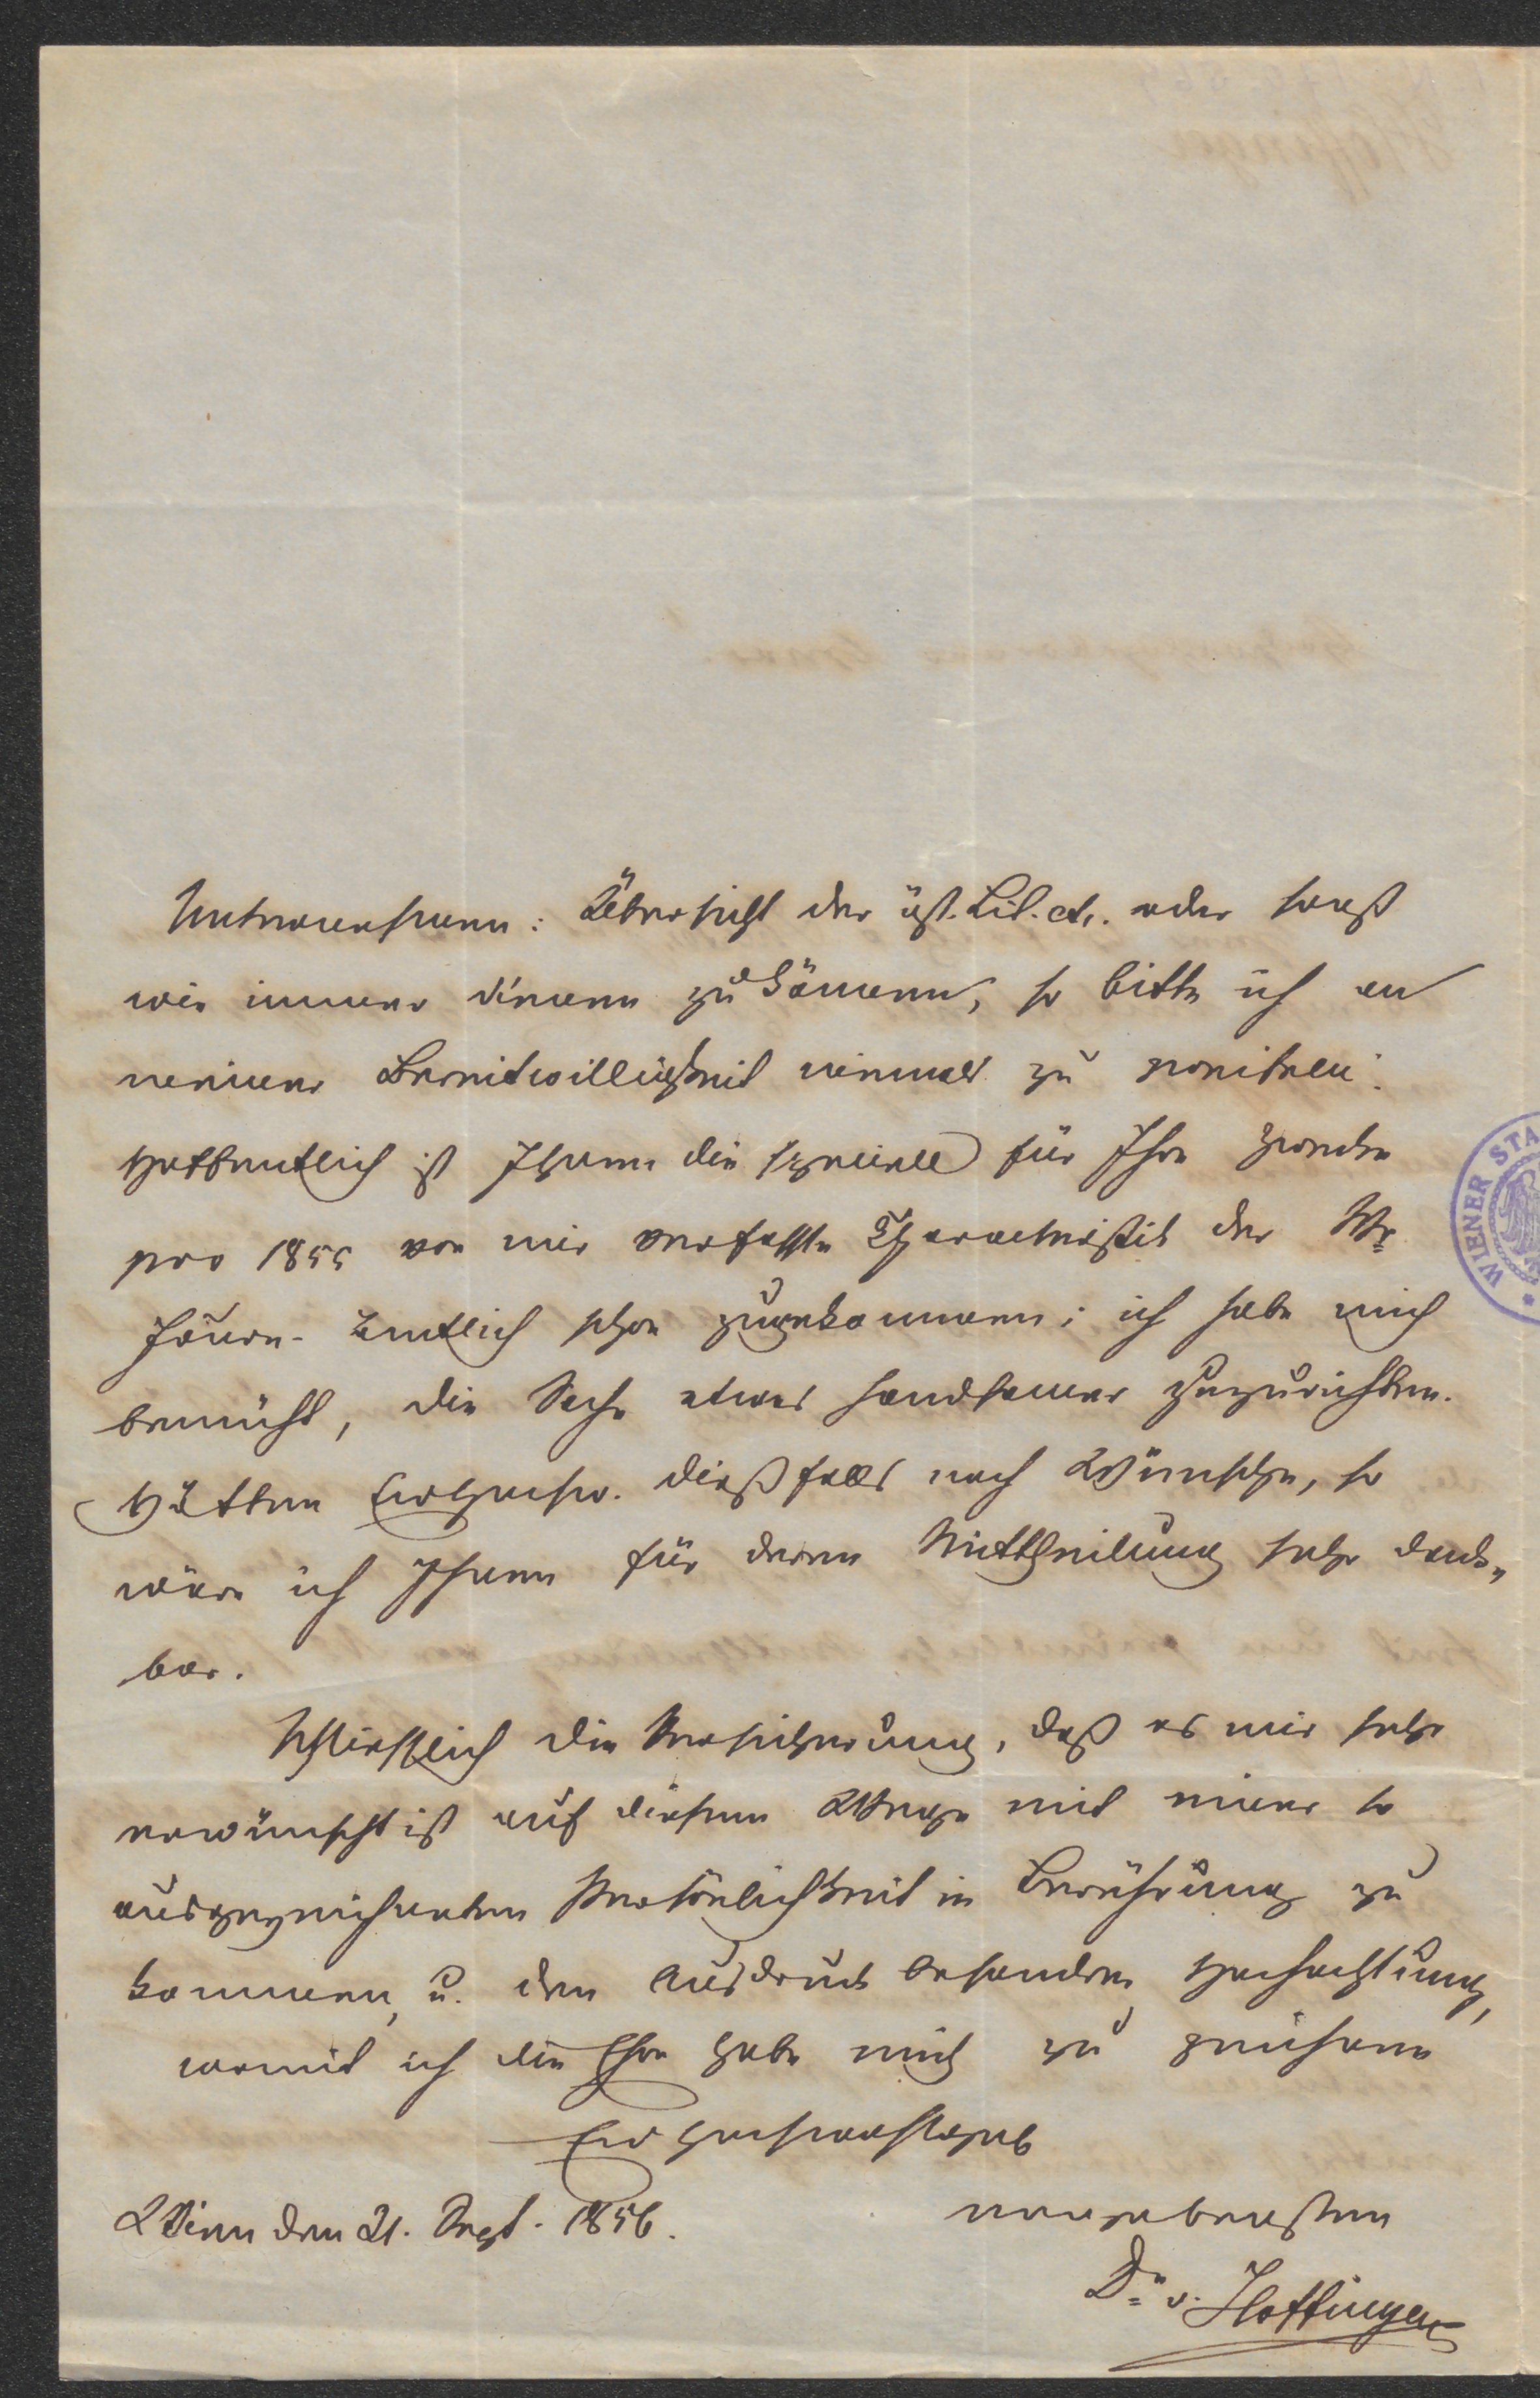 Unternehmen: Übersicht der öst. Lit. etc. oder sonst
wie immer dienen zu können, so bitte ich an
meiner Bereitwilligkeit niemals zu zweifeln.
Hoffentlich ist Ihnen die speciell für Ihre Zwecke
pro 1855 von mir verfaßte Charakteristik der Wr
Journ- endlich schon zugekommen; ich habe mich
bemüht, die Sache etwas handsamer zuzurichten.
Hätten Euer Hochw. dießfalls noch Wünsche, so
wäre ich Ihnen für deren Mittheilung sehr dank-
bar.
Schließlich die Versicherung, daß es mir sehr
erwünscht ist auf diesem Wege mit einer so
ausgezeichneten Persönlichkeit in Berührung zu
kommen, u. den Ausdruck besondrer Hochachtung,
womit ich die Ehre habe mich zu zeichnen
Euer
Wien den 21. Sept. 1856.
ergebensten
Dr. v. Hoffinger
WIENER STA